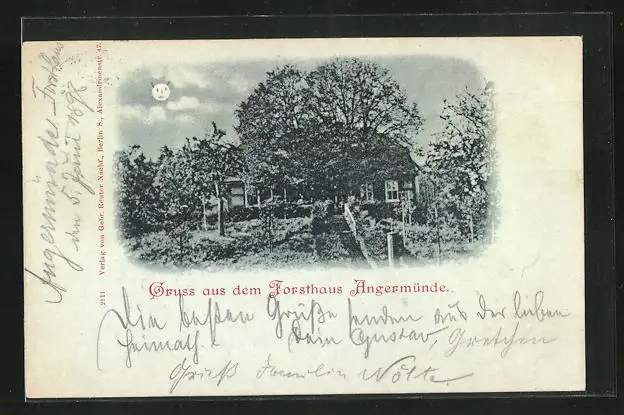 Angermünde, Forsthaus
den 5. Juni 1898
2111 Verlag von Gebr. Reuter Nachf., Berlin S., Alexandrinenstr. 47.
Gruss aus dem Forsthaus Angermünde.
Die besten Grüße senden aus der lieben
Heimath! Dein Gustav, Gretchen
Familie Nölte.